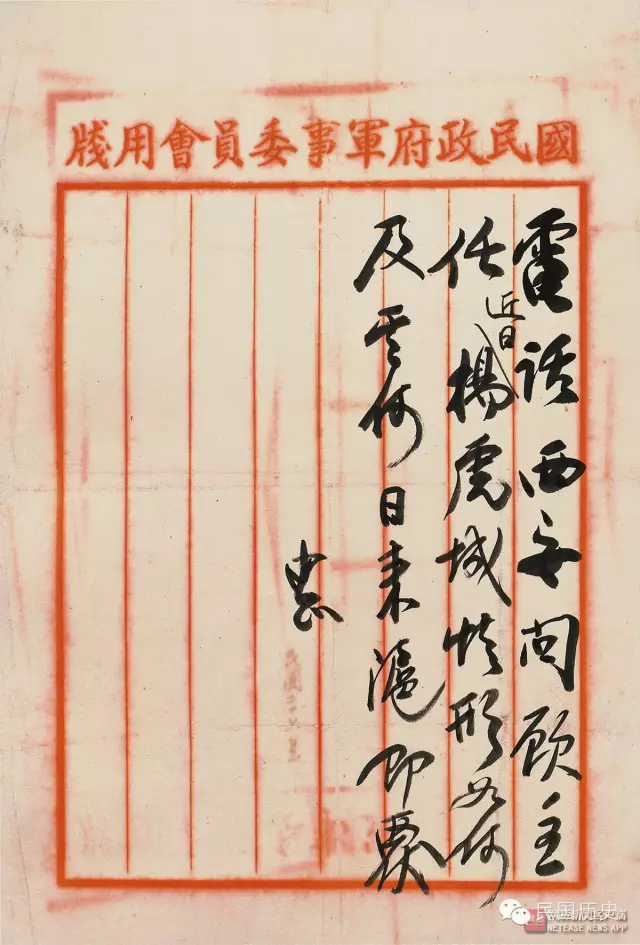 國民政府軍事委員會用牋
電話西安問顧主
任近日楊虎城情形如何
及其何日来滬即覆
中正
民国历史
NETEASE NEWS APP